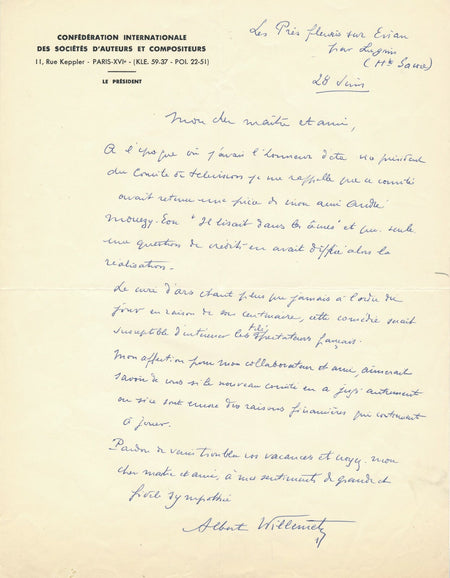 CONFÉDÉRATION INTERNATIONALE
DES SOCIÉTÉS D'AUTEURS ET COMPOSITEURS
11, Rue Keppler - PARIS-XVIe - (KLE. 59-37 - POI. 22-51)
LE PRÉSIDENT
Les Près fleuris sur Evian
par Lugrin
(Hte Savoie)
28 Juin
Mon cher maître et ami,
A l'époque où j'avais l'honneur d'être président
du Comité de télévision je me rappelle que ce comité
avait retenu une pièce de mon ami André
Mouezy-Eon "Il lisait dans les âmes" et que seule
une question de crédits en avait différé alors la
réalisation.
Le curé d'ars étant plus que jamais à l'ordre du
jour en raison de son centenaire, cette comédie serait
susceptible d'intéresser les téléspectateurs français.
Mon affection pour mon collaborateur et ami, aimerait
savoir de vous si le nouveau comité en a jugé autrement
ou si ce sont encore des raisons financières qui continuent
à jouer.
Pardon de venir troubler vos vacances et croyez, mon
cher maître et ami, à mes sentiments de grande et
fidèle sympathie
Albert Willemetz